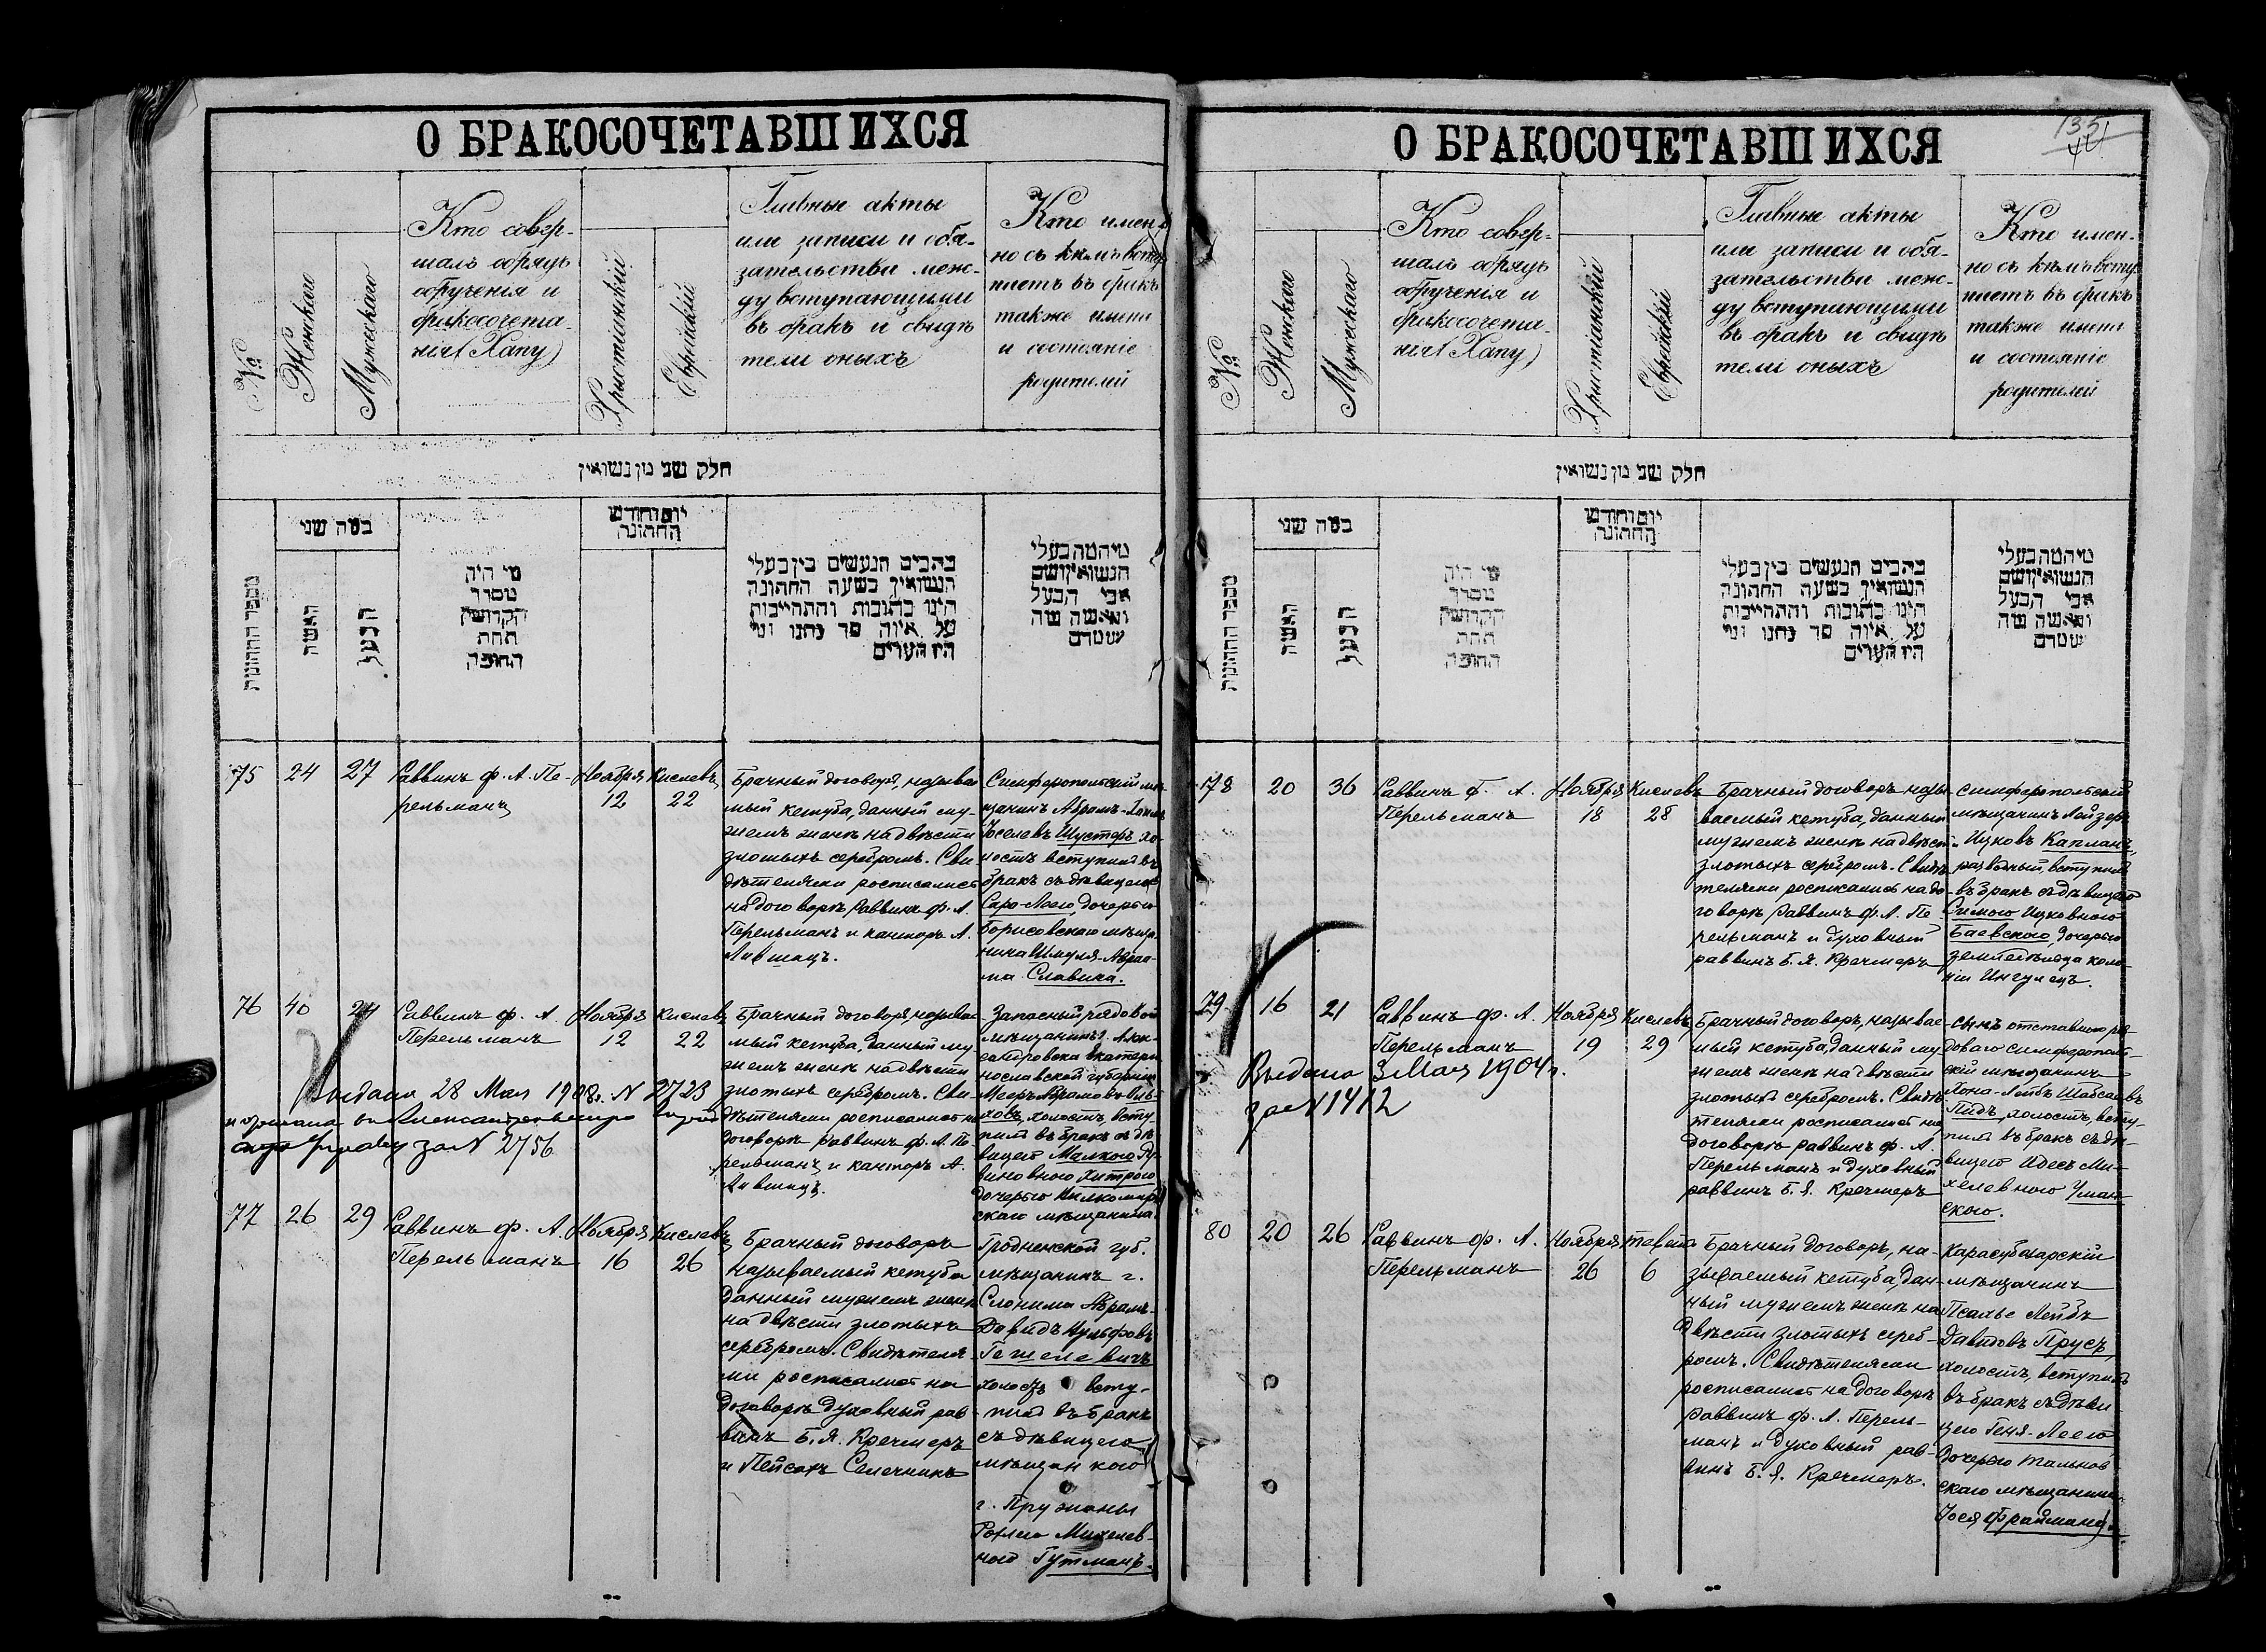 О БРАКОСОЧЕТАВШИХСЯ
№
Женскаго
Мужескаго
Кто совер-
шалъ обрядъ
обрученія и
бракосочета-
нія (Хапу)
Христіанскій
Еврейскій
Главные акты
или записи и обя-
зательства меж-
ду вступающими
въ бракъ и свидѣ
тели оныхъ
Кто имен-
но съ кѣмъ всту
паетъ въ бракъ
также имена
и состояніе
родителей
חלק שני מן נשואין
מספר החתונות
כמה שני
האשה
הבעל
מי היה
מסדר
הקדושין
תחת
החופה
יום וחודש
החתונה
הנעשים בין בעלי
הנשואין בשעה החתונה
היינו כתובות והתחייבות
על איזה סך נתנו ומי
75
24
27
Раввинъ ф. А. Пе-
рельманъ
Ноября
12
Кислевъ
22
Брачный договоръ, называе
мый кетуба, данный му-
жемъ женѣ на двѣсти
злотыхъ серебромъ. Сви
дѣтелями росписались
на договорѣ Раввинъ ф. А.
Перельманъ и канторъ А.
Лившицъ.
Симферопольскій мѣ
щанинъ Абрамъ-
Іоселевъ Шустеръ хо-
лостъ вступилъ въ
бракъ съ дѣвицею
Саро-Леею, дочерью
Борисовскаго мѣщ
нина Шмуля-Абра-
ма Славина.
76
40
24
Раввинъ ф. А.
Перельманъ
Ноября
12
Кислевъ
22
Брачный договоръ, называе
мый кетуба, данный му
жемъ женѣ на двѣсти
злотыхъ серебромъ. Сви
дѣтелями росписались на
договорѣ раввинъ ф. А. Пе-
рельманъ и канторъ А.
Лившицъ.
Запасный рядовой
мѣщанинъ г. Алек-
сандровска Екатери
нославской губерніи
Мееръ Абрамовъ
холостъ, всту-
пилъ въ бракъ съ дѣ
вицей Малкою Ру
виновною Хитрою
дочерью Вилкомир
скаго мѣщанина.
Выдана 28 Мая 1908г. N 2723
за N 2756
77
26
29
Раввинъ ф. А.
Перельманъ
Ноября
16
Кислевъ
26
Брачный договоръ
называемый кетуба
данный мужемъ женѣ
на двѣсти злотыхъ
серебромъ. Свидѣтеля
ми росписались на
договорѣ духовный рав
винъ Б. Я. Кречмеръ
и Пейсахъ Селечникъ
Гродненской губ.
мѣщанинъ г.
Слонима Абрамъ-
Давидъ Нульфовъ
Гешелевичъ
холостъ всту-
пилъ въ бракъ
съ дѣвицею
мѣщанкою
г. Пружаны
Михелев-
ною Гутманъ.
135
О БРАКОСОЧЕТАВШИХСЯ
№
Женскаго
Мужескаго
Кто совер-
шалъ обрядъ
обрученія и
бракосочета-
нія (Хапу)
Христіанскій
Еврейскій
Главные акты
или записи и обя-
зательства меж-
ду вступающими
въ бракъ и свидѣ
тели оныхъ
Кто имен-
но съ кѣмъ всту
паетъ въ бракъ
также имена
и состояніе
родителей
חלק שני מן נשואין
מספר החתונות
כמה שני
האשה
הבעל
מי היה
מסדר
הקדושין
תחת
החופה
יום וחודש
החתונה
הנעשים בין בעלי
הנשואין בשעה החתונה
היינו כתובות והתחייבות
על איזה סך נתנו ומי
78
20
36
Раввинъ Ф. А.
Перельманъ
Ноября
18
Кислевъ
28
Брачный договоръ назы-
ваемый кетуба, данный
мужемъ женѣ на двѣсти
злотыхъ серебромъ. Свидѣ
телями росписались на до-
говорѣ раввинъ ф. А. Пе-
рельманъ и духовный
раввинъ Б. Я. Кречмеръ
Симферопольскій
мѣщанинъ Лейзеръ
Ицковъ Капланъ,
разводный, вступилъ
въ бракъ съ дѣвицею
Симою Ицковною
Баевскою, дочерью
земледѣльца коло-
ніи Ингулецъ.
79
16
21
Раввинъ ф. А.
Перельманъ
Ноября
19
Кислевъ
29
Брачный договоръ, называе-
мый кетуба, данный му-
жемъ женѣ на двѣсти
злотыхъ серебромъ. Свидѣ
телями росписались на
договорѣ раввинъ ф. А.
Перельманъ и духовный
раввинъ Б. Я. Кречмеръ
Сынъ отставного ря
доваго Симферополь-
скій мѣщанинъ
Іона-Лейбъ Шабсаевъ
холостъ, всту-
пилъ въ бракъ съ дѣ-
вицею Идесъ Ми-
хелевною Уман-
скою.
Выдана 3 Мая 1904 г.
за N 1412
80
20
26
Раввинъ ф. А.
Перельманъ
Ноября
26
Тавета
6
Брачный договоръ, на-
зываемый кетуба, дан-
ный мужемъ женѣ на
двѣсти злотыхъ сереб-
ромъ. Свидѣтелями
росписались на договорѣ
раввинъ ф. А. Перель-
манъ и духовный рав-
винъ Б. Я. Кречмеръ.
Карасубазарскій
мѣщанинъ
Псалье Лейбъ
Давидовъ Прусъ,
холостъ, вступилъ
въ бракъ съ дѣви
цею Геня-Леею
дочерью Тальнов
скаго мѣщанина
Іося Фраймана.